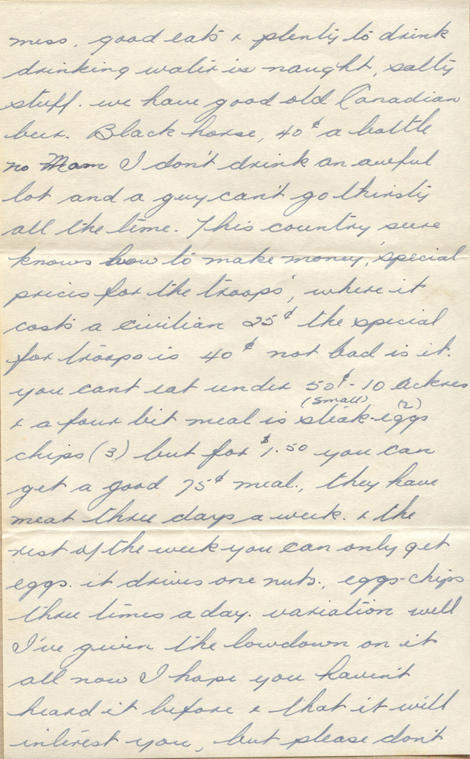 mess. good eats & plenty to drink
drinking water is naught, salty
stuff. we have good old Canadian
beer. Black horse, 40¢ a bottle
no Mam I don't drink an awful
lot and a guy can't go thirsty
all the time. This country sure
knows how to make money, 'special
prices for the troops', where it
costs a civilian 25¢ the special
for troops is 40¢ not bad is it.
you cant eat under 50¢ - 10 Ackres
& a four bit meal is (small) steak-eggs (2)
chips (3) but for $1.50 you can
get a good 75¢ meal., they have
meat three days a week. & the
rest of the week you can only get
eggs. it drives one nuts., eggs-chips
three times a day. variation well
I've given the lowdown on it
all now I hope you haven't
heard it before & that it will
interest you, but please don't